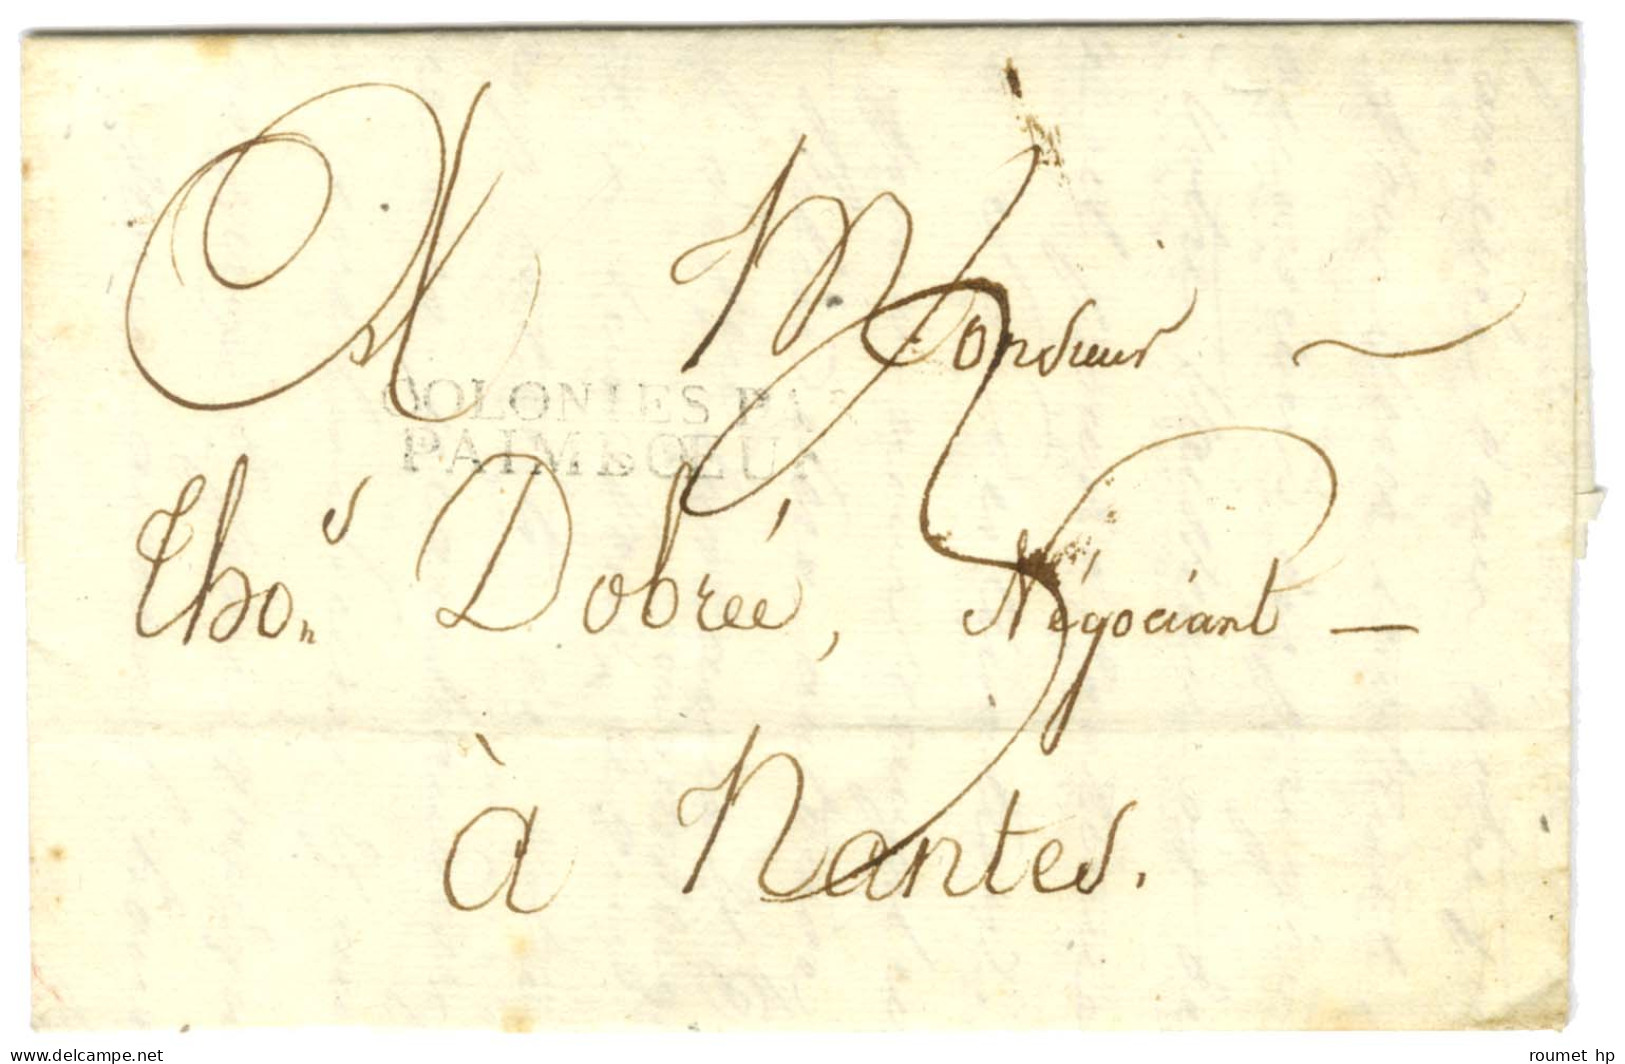 A Monsieur —
COLONIES PAR
PAIMBŒUF
Thos Dobrée, Négociant —
à Nantes.
www.delcampe.net
roumet hp